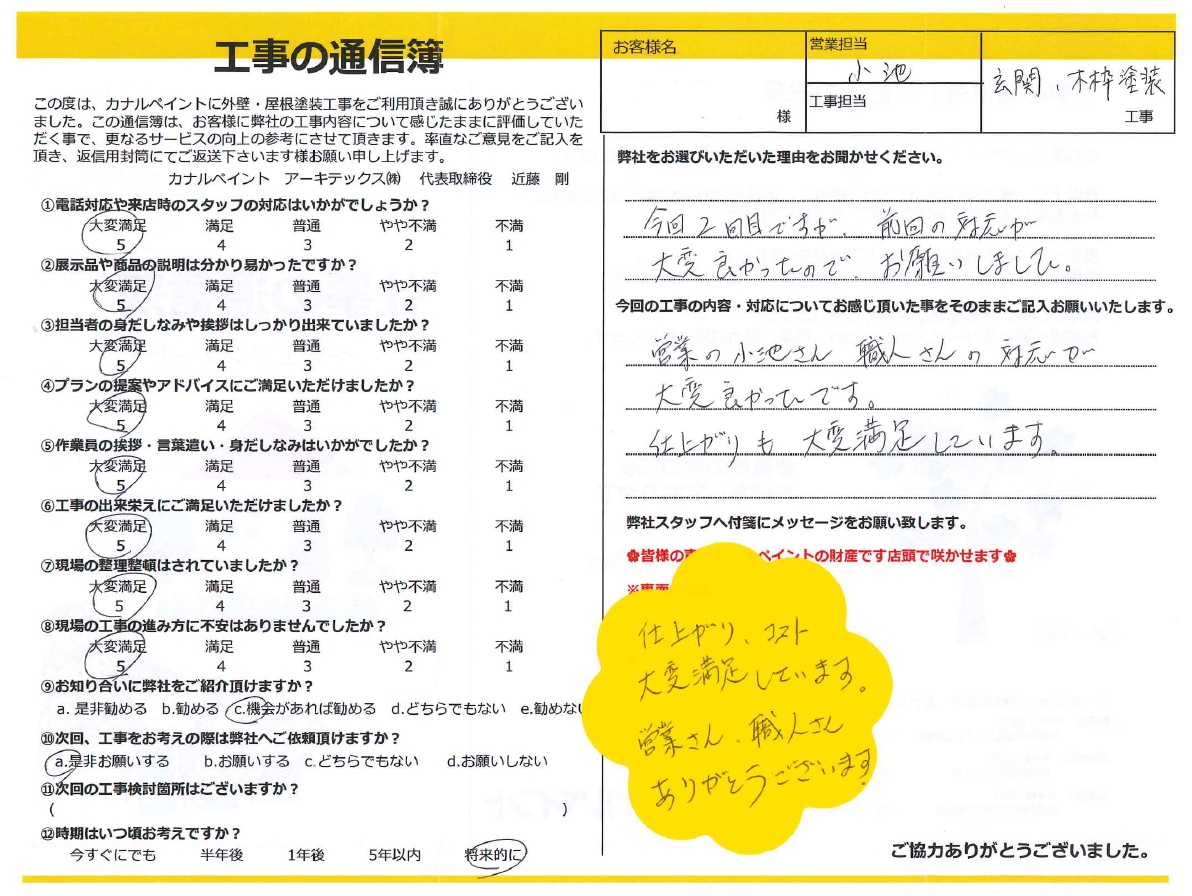 工事の通信簿
この度は、カナルペイントに外壁・屋根塗装工事をご利用頂き誠にありがとうござい
ました。この通信簿は、お客様に弊社の工事内容について感じたままに評価していた
だく事で、更なるサービスの向上の参考にさせて頂きます。率直なご意見をご記入を
頂き、返信用封筒にてご返送下さいます様お願い申し上げます。
カナルペイント アーキテックス㈱ 代表取締役 近藤 剛
①電話対応や来店時のスタッフの対応はいかがでしょうか？
大変満足 満足 普通 やや不満 不満
5 4 3 2 1
②展示品や商品の説明は分かり易かったですか？
大変満足 満足 普通 やや不満 不満
5 4 3 2 1
③担当者の身だしなみや挨拶はしっかり出来ていましたか？
大変満足 満足 普通 やや不満 不満
5 4 3 2 1
④プランの提案やアドバイスにご満足いただけましたか？
大変満足 満足 普通 やや不満 不満
5 4 3 2 1
⑤作業員の挨拶・言葉遣い・身だしなみはいかがでしたか？
大変満足 満足 普通 やや不満 不満
5 4 3 2 1
⑥工事の出来栄えにご満足いただけましたか？
大変満足 満足 普通 やや不満 不満
5 4 3 2 1
⑦現場の整理整頓はされていましたか？
大変満足 満足 普通 やや不満 不満
5 4 3 2 1
⑧現場の工事の進み方に不安はありませんでしたか？
大変満足 満足 普通 やや不満 不満
5 4 3 2 1
⑨お知り合いに弊社をご紹介頂けますか？
a. 是非勧める b.勧める c.機会があれば勧める d.どちらでもない e.勧めない
⑩次回、工事をお考えの際は弊社へご依頼頂けますか？
a.是非お願いする b.お願いする c.どちらでもない d.お願いしない
⑪次回の工事検討箇所はございますか？
( )
⑫時期はいつ頃お考えですか？
今すぐにでも 半年後 1年後 5年以内 将来的に
お客様名
様
営業担当
小池
工事担当
玄関、木枠塗装
工事
弊社をお選びいただいた理由をお聞かせください。
今回2回目ですが、前回の対応が
大変良かったので、お願いしました。
今回の工事の内容・対応についてお感じ頂いた事をそのままご記入お願いいたします。
営業の小池さん 職人さんの対応が
大変良かったです。
仕上がりも大変満足しています。
弊社スタッフへ付箋にメッセージをお願い致します。
✿皆様の ペイントの財産です店頭で咲かせます✿
仕上がり、コスト
大変満足しています。
営業さん、職人さん
ありがとうございます
ご協力ありがとうございました。